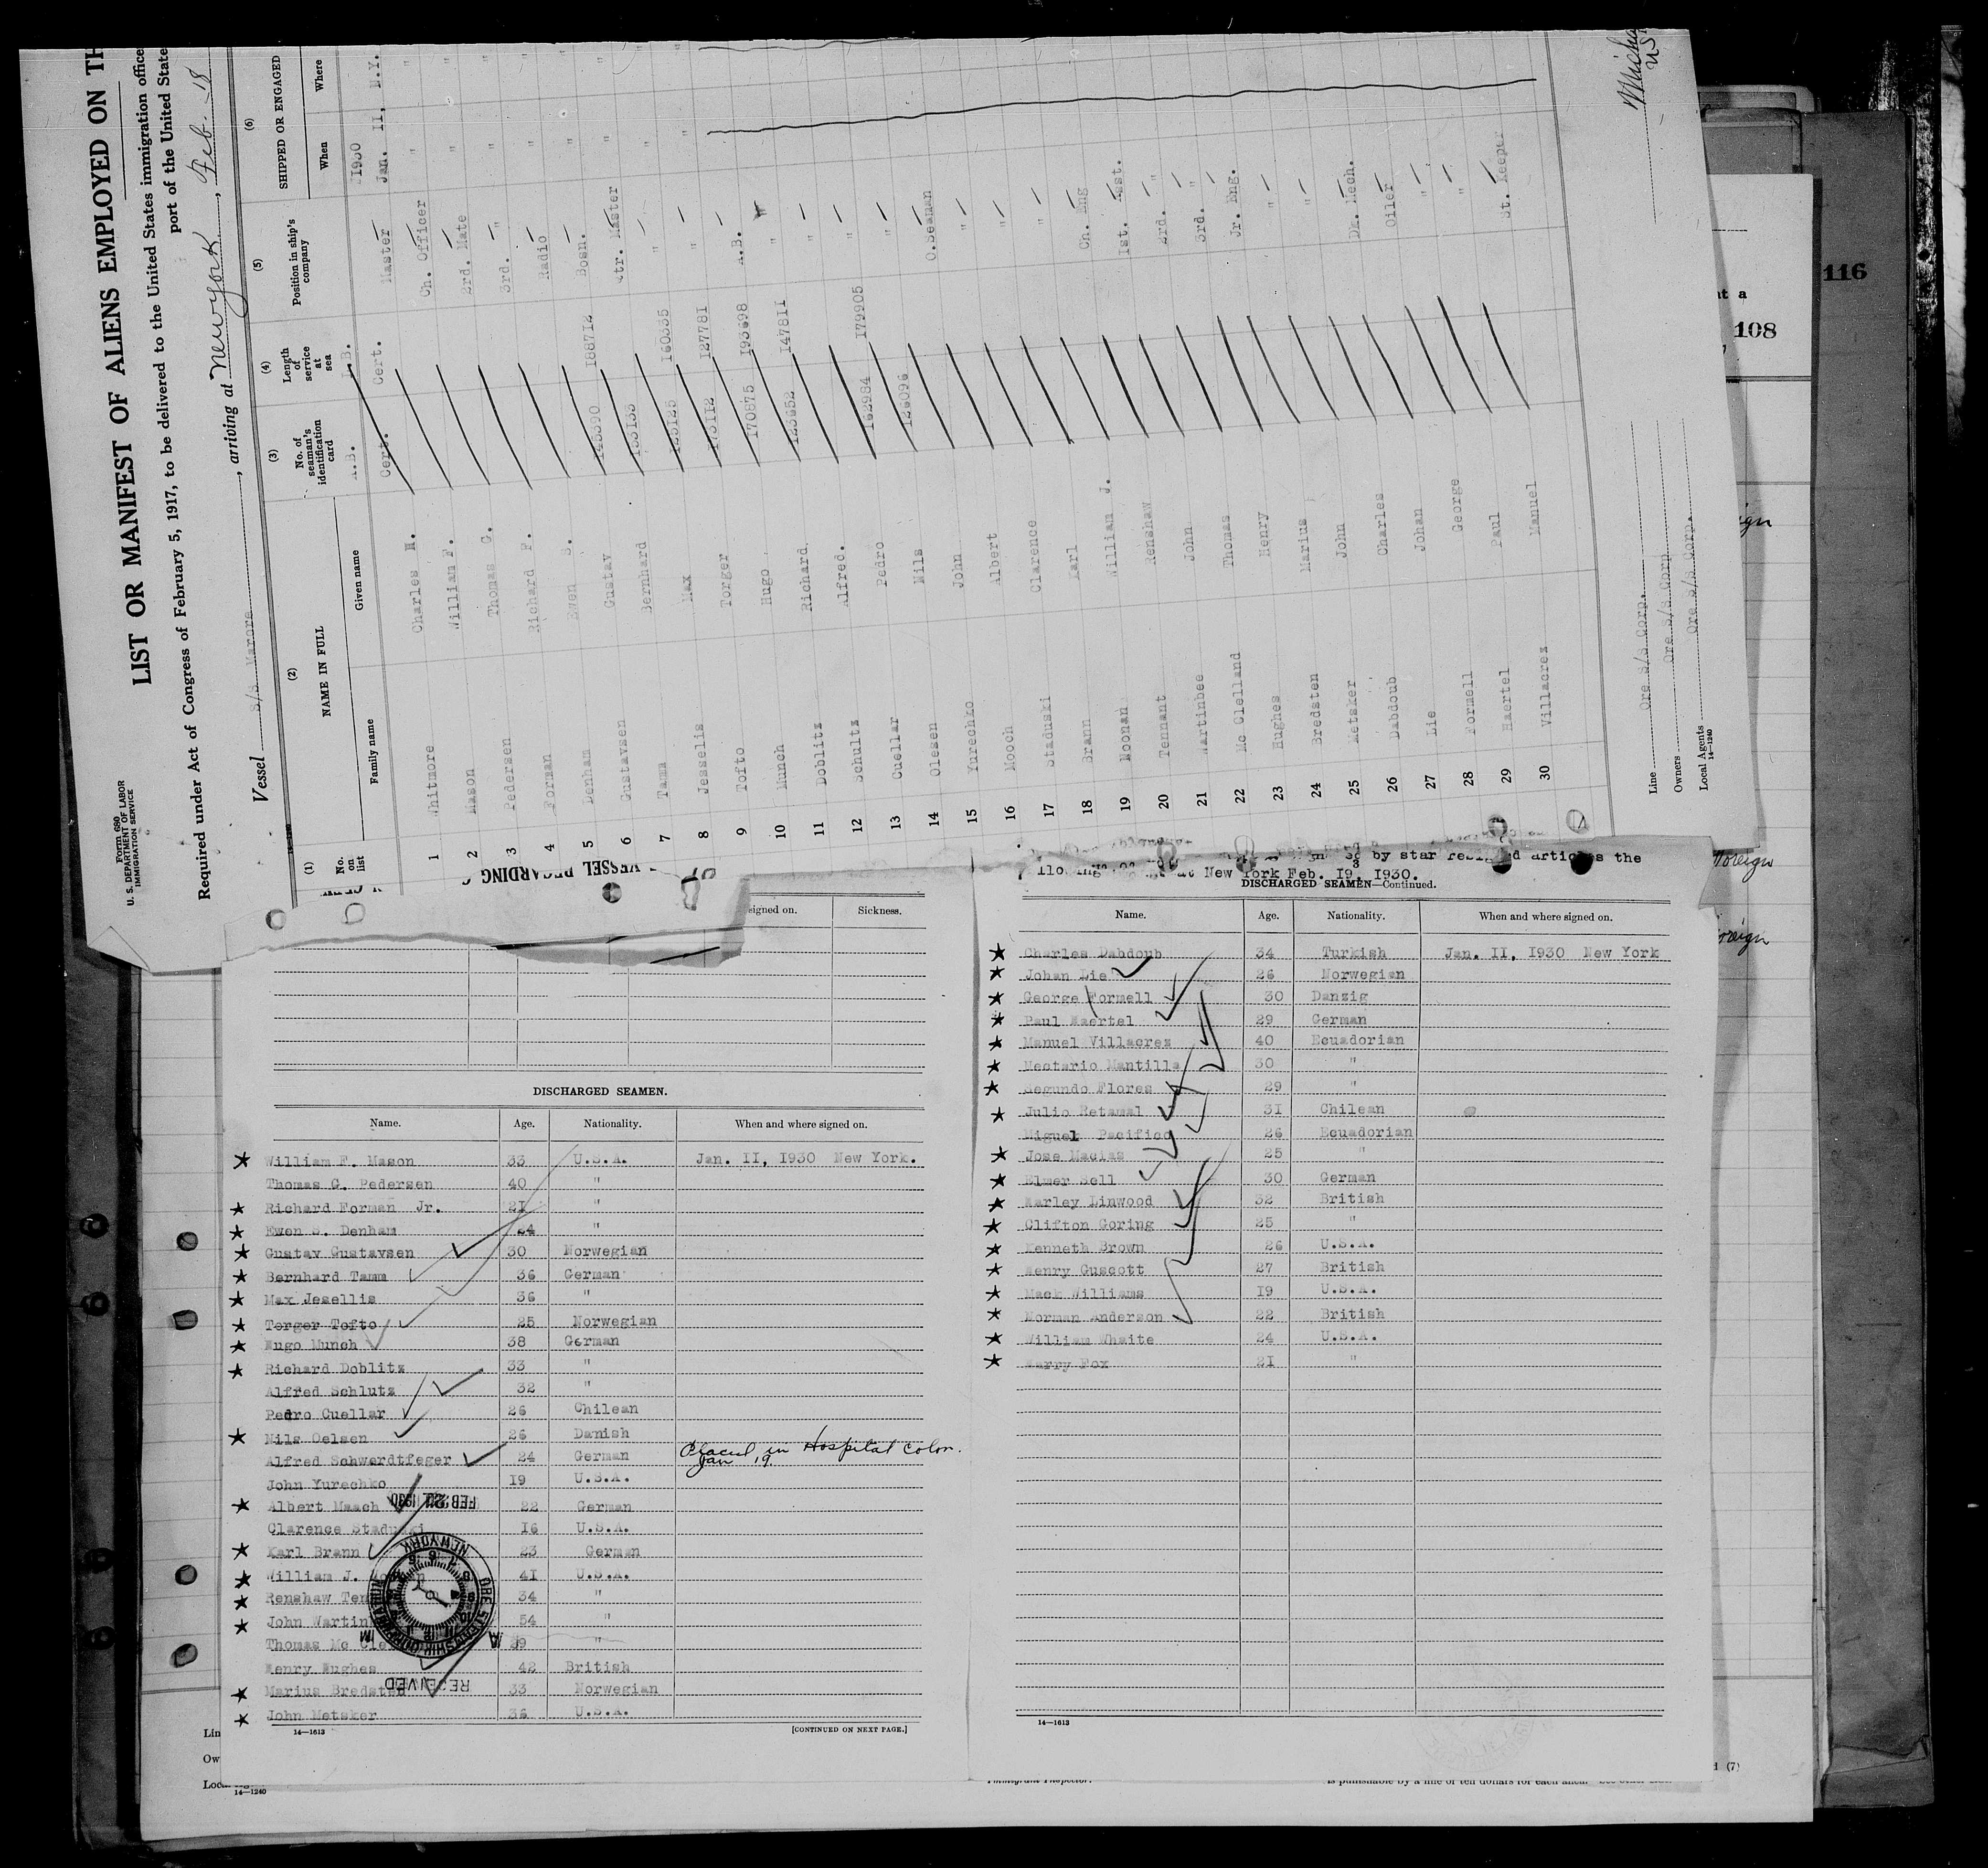 Form 680
U. S. DEPARTMENT OF LABOR
IMMIGRATION SERVICE
LIST OR MANIFEST OF ALIENS EMPLOYED ON TH
Required under Act of Congress of February 5, 1917, to be delivered to the United States immigration office
port of the United State
Vessel S/S Marore, arriving at New York, Feb. 18
(1) (2) (3) (4) (5) (6)
No. on list NAME IN FULL No. of seaman's identification card Length of service at sea Position in ship's company SHIPPED OR ENGAGED
Family name Given name When Where
A.B. Cert. Cert. 1930
1 Whitmore Charles H. Master Jan. II, N.Y.
2 Mason William F. Ch. Officer " "
3 Pedersen Thomas G. 2rd. Mate " "
4 Forman Richard F. 3rd. " " "
5 Denham Ewen S. Radio " "
6 Gustavsen Gustav 188712 Bosn. " "
7 Tamm Bernhard Qtr. Master " "
8 Jesselis Max 160335 " "
9 Tofto Torger 127781 "
10 Munch Hugo 170875 193698 A.B.
11 Doblitz Richard 147811 "
12 Schultz Alfred. "
13 Cuellar Pedro 162984 179905 "
14 Olesen Nils 126096 "
15 Yurechko John O.Seaman
16 Mooch Albert "
17 Staduski Clarence "
18 Brann Karl "
19 Noonan William J. Ch. Eng
20 Tennant Renshaw 1st. Asst.
21 Wartinbee John 2rd. "
22 Mc Clelland Thomas 3rd. "
23 Hughes Henry Jr. Eng.
24 Bredsten Marius "
25 Metsker John "
26 Dabdoub Charles Dk. Mech.
27 Lie Johan Oiler
28 Formell George "
29 Haertel Paul "
30 Villacrez Manuel St. Keeper
Line Ore S/S Corp.
Owners Ore S/S Corp
Local Agents Ore S/S Corp.
14—1240
VESSEL REGARDING
116
at a
108
ign
foreign
oreign
by star articles the
at New York Feb. I9, I930.
3
DISCHARGED SEAMEN—Continued.
signed on. Sickness.
DISCHARGED SEAMEN.
Name. Age. Nationality. When and where signed on.
★ William F. Mason 33 U.S.A. Jan. II, I930 New York.
Thomas G. Pedersen 40 "
★ Richard Forman Jr. 2I "
★ Ewen S. Denham 24 "
★ Gustav Gustavsen 30 Norwegian
★ Bernhard Tamm 36 German
★ Max Jesellis 36 "
★ Torger Tofto 25 Norwegian
★ Hugo Munch 38 German
★ Richard Doblitz 33 "
Alfred Schlutz 32 "
Pedro Cuellar 26 Chilean
★ Nils Oelsen 26 Danish
Alfred Schwerdtfeger 24 German Placed in Hospital Colon.
Jan 19.
John Yurechko I9 U.S.A.
★ Albert Maach 22 German
Clarence Staduski I6 U.S.A.
★ Karl Brann 23 German
★ William J. 4I U.S.A.
★ Renshaw Ten 34 "
★ John Wartin 54 "
Thomas Mc Cle 39 "
Henry Hughes 42 British
★ Marius Bredsten 33 Norwegian
★ John Metsker 36 U.S.A.
14—1613 [CONTINUED ON NEXT PAGE.]
FEB 20 1930
NEW YORK
ORE STEAMSHIP CORPORATION
RECEIVED
Name. Age. Nationality. When and where signed on.
★ Charles Dabdoub 34 Turkish Jan. II, I930 New York
★ Johan Lie 26 Norwegian
★ George Formell 30 Danzig
★ Paul Haertel 29 German
★ Manuel Villacrez 40 Ecuadorian
★ Nectario Mantilla 30 "
★ Segundo Flores 29 "
★ Julio Retamal 3I Chilean
Miguel Pacifico 26 Ecuadorian
★ Jose Macias 25 "
★ Elmer Sell 30 German
★ Harley Linwood 32 British
★ Clifton Goring 25 "
★ Kenneth Brown 26 U.S.A.
★ Henry Guscott 27 British
★ Mack Williams I9 U.S.A.
★ Norman Anderson 22 British
★ William Whaite 24 U.S.A.
★ Harry Fox 2I "
14—1613
Lin
Ow
Loc
14—1240
Immigrant Inspector.
is punishable by a fine of ten dollars for each alien.
(7)